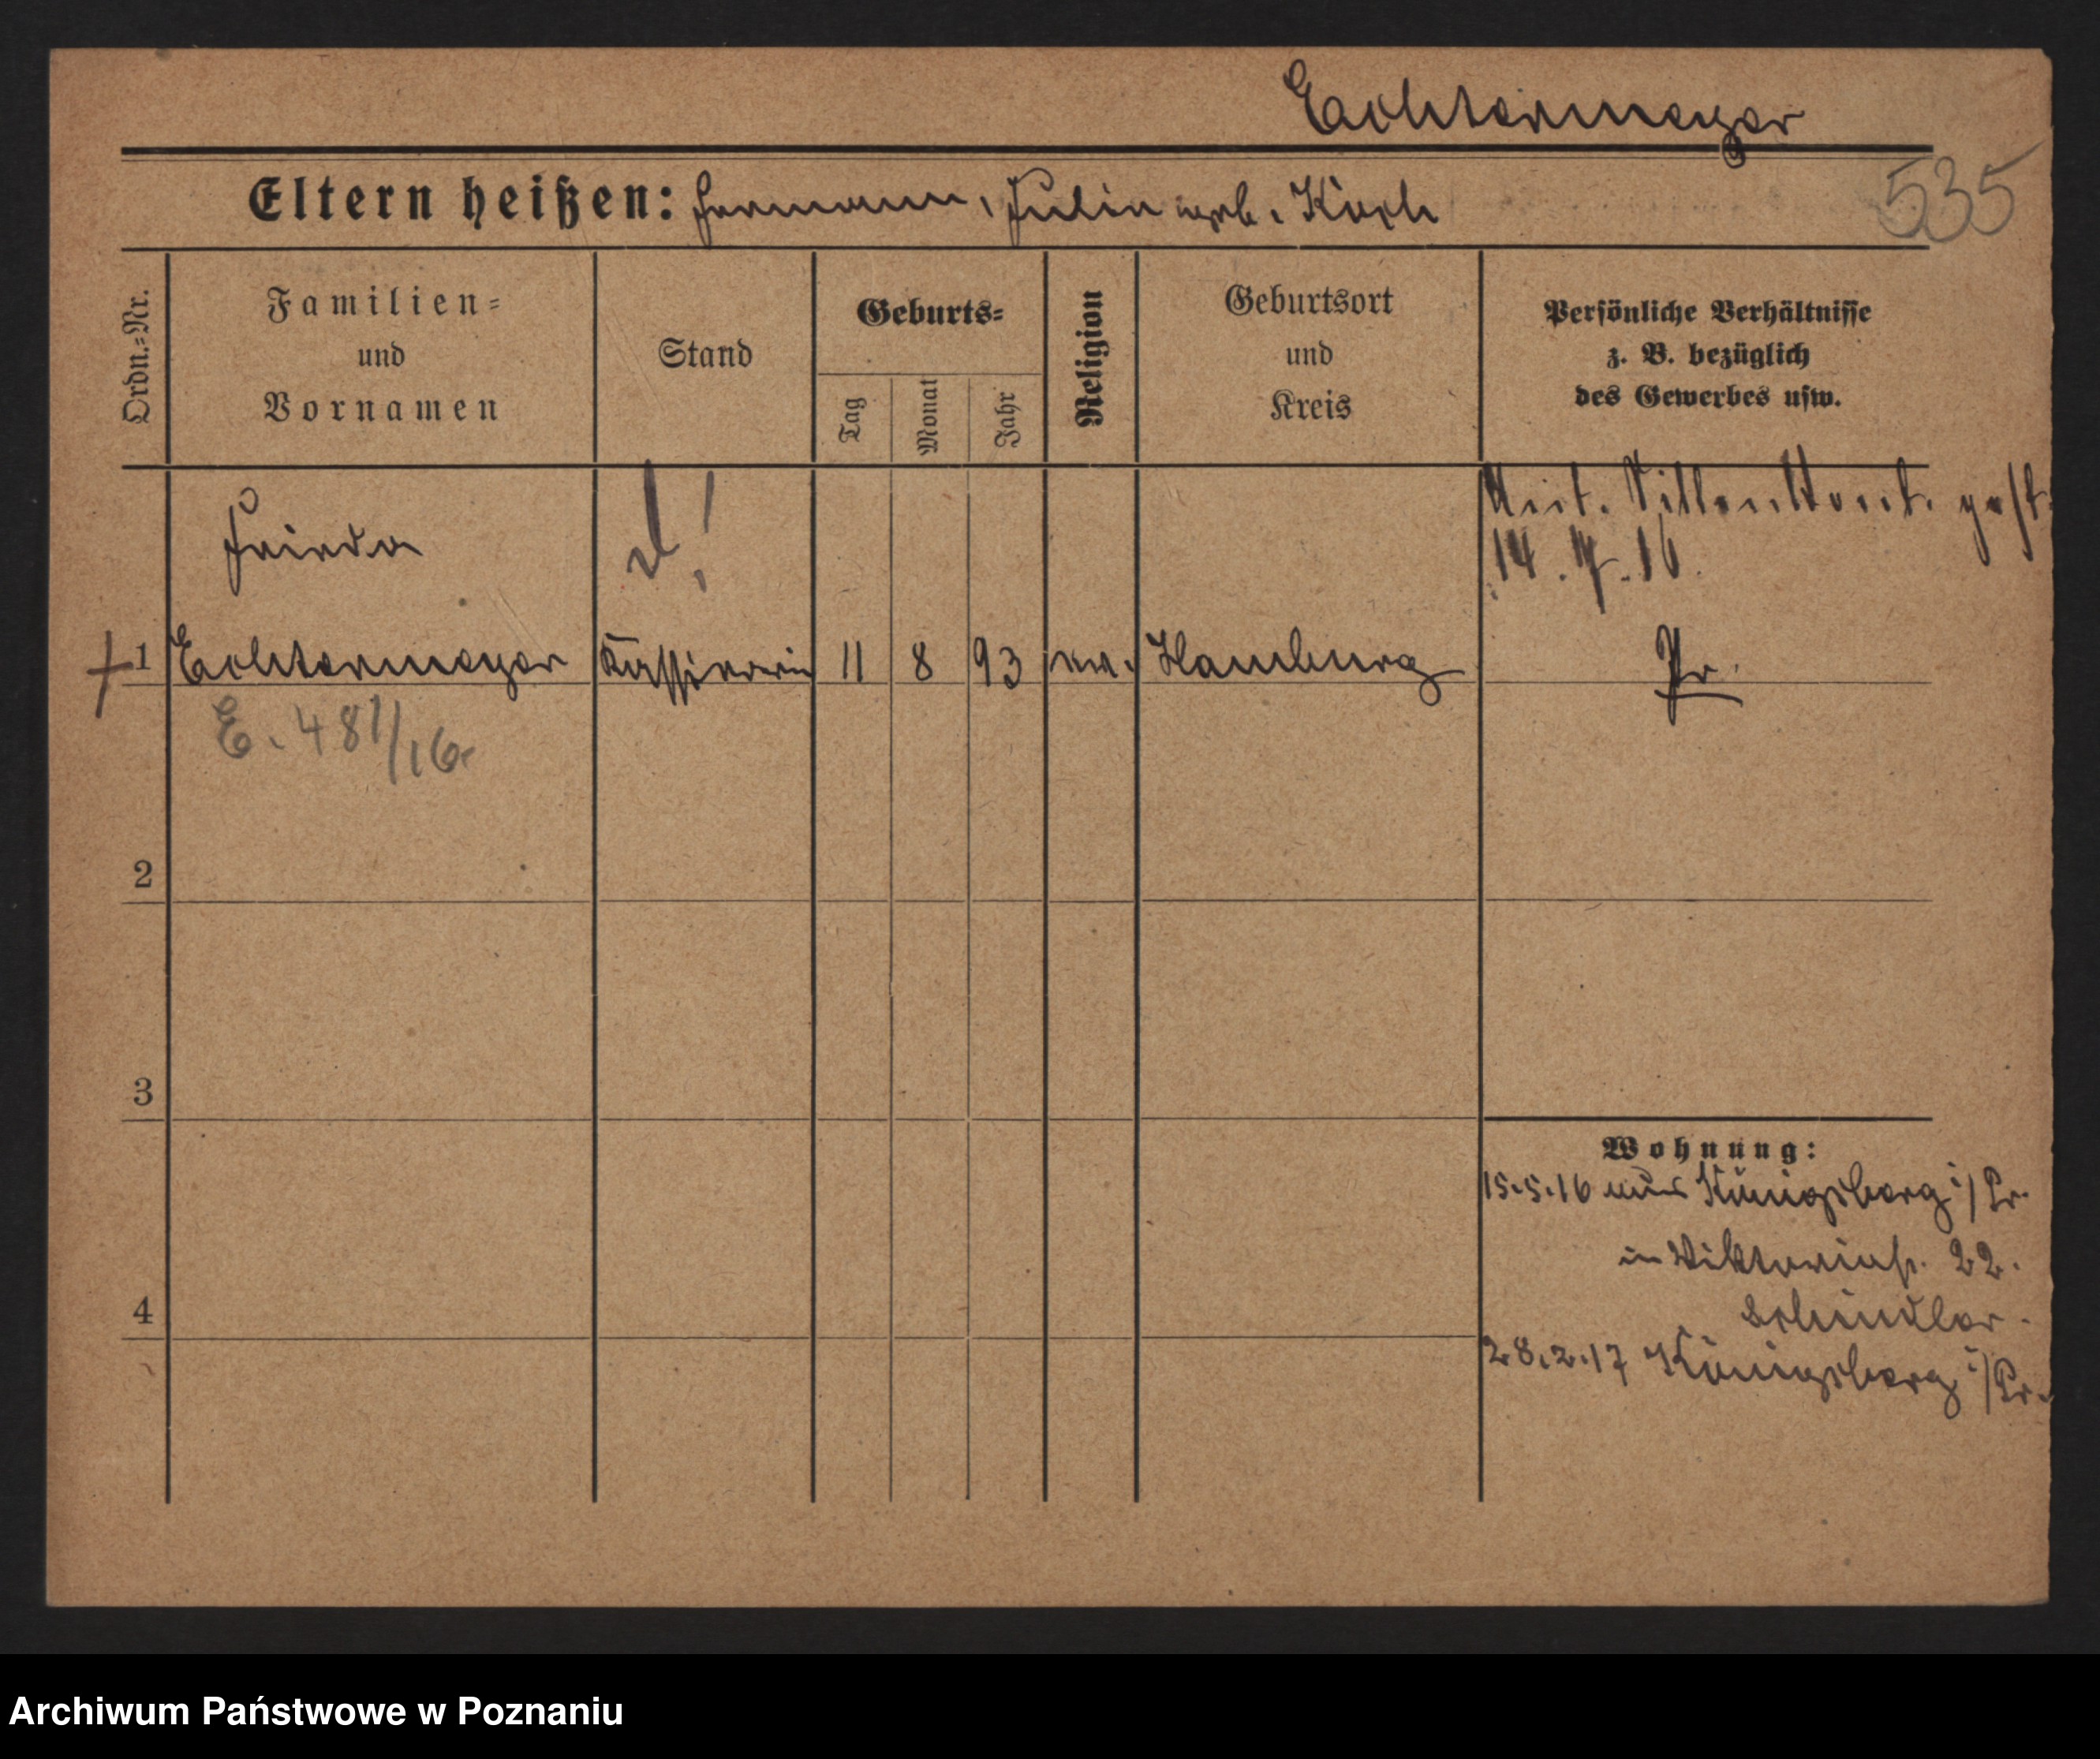 Echtermeyer
Eltern heißen: Hermann, Julie geb. Koch
535
Ordn.-Nr.
Familien-
und
Vornamen
Stand
Geburts-
Tag
Monat
Jahr
Religion
Geburtsort
und
Kreis
Persönliche Verhältnisse
z. B. bezüglich
des Gewerbes usw.
gest.
14. 7. 16
Frieda
1 Echtermeyer Kassiererin 11 8 93 ev. Hamburg Pr.
E. 481/16.
2
3
4
Wohnung:
15.5.16 aus Königsberg i/Pr.
in Viktoriastr. 22.
Schindler.
28.2.17 Königsberg i/Pr.
Archiwum Państwowe w Poznaniu